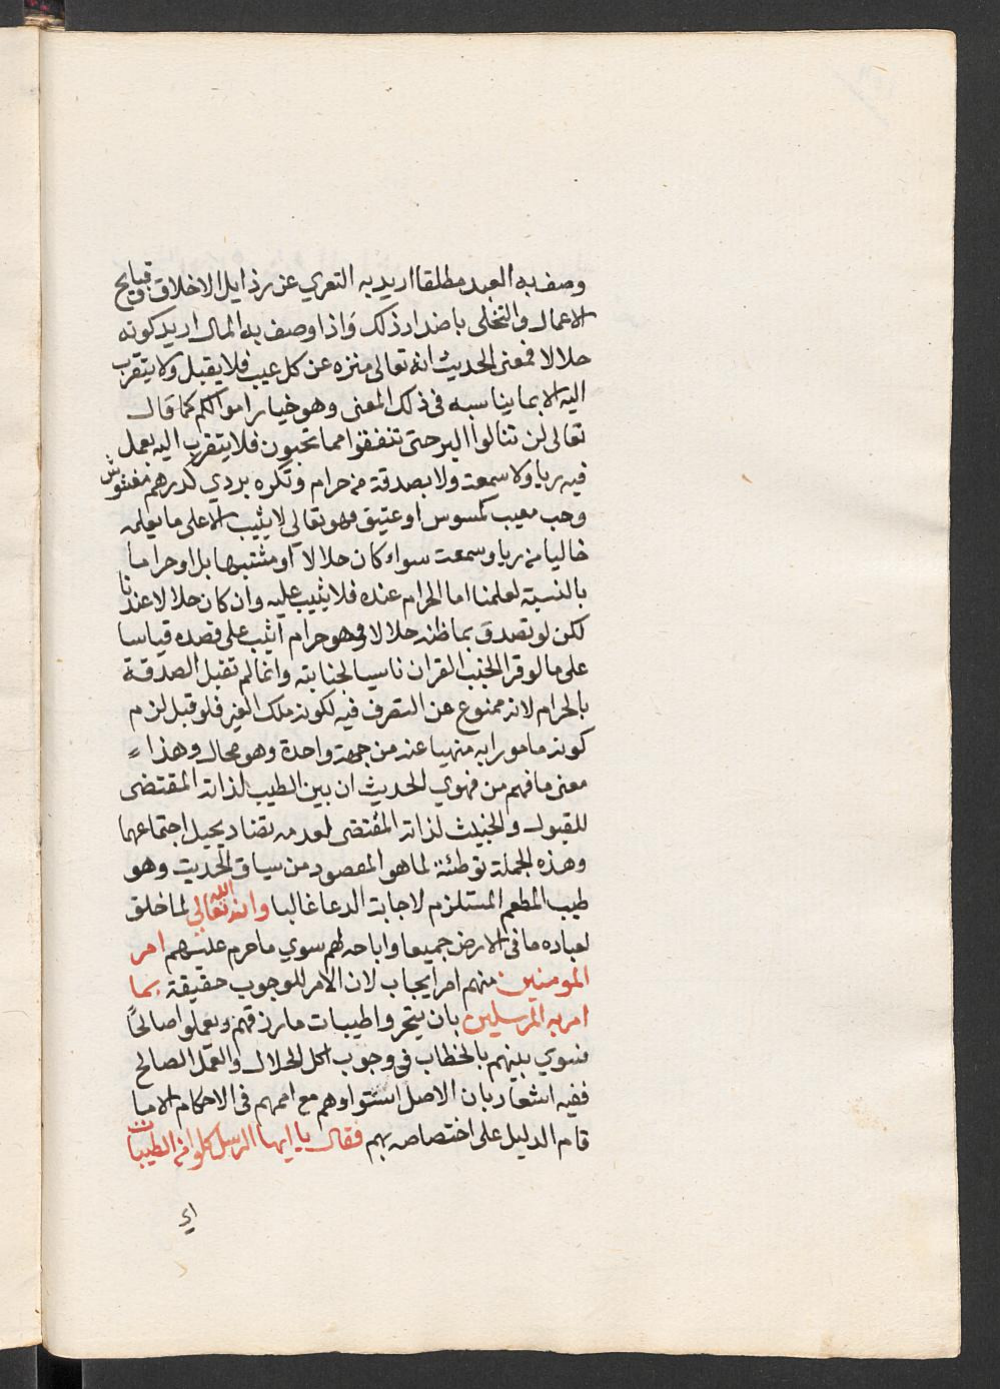 وصف به العبد مطلقا اريد به التعري عن رذايل الاخلاق وقبايح
الاعمال والتخلى باضداد ذلك واذا وصف به المال اريد كونه
حلالا فمعنى الحديث انه تعالى منزه عن كل عيب فلا يقبل ولا يتقرب
اليه الا بما يناسبه فى ذلك المعنى وهو خيار اموالكم كما قال
تعالى لن تنالوا البر حتى تنفقوا مما تحبون فلا يتقرب اليه بعمل
فيه ريا ولا سمعة ولا بصدقة من حرام وتكره بردي كدرهم مغشوش
وحب معيب كمسوس او عتيق فهو تعالي لا يثيب الا على ما يعلمه
خاليا من ريا وسمعة سواء كان حلالا او مشتبها بل او حراما
بالنسبة لعلمنا اما الحرام عنده فلا يثيب عليه وان كان حلالا عندنا
لكن لو تصدق بما ظنه حلالا وهو حرام اثيب على قصده قياسا
على ما لو قرا الجنب القران ناسيا لجنابته وانما لم تقبل الصدقة
بالحرام لانه ممنوع عن التصرف فيه لكونه ملك الغير فلو قبل لزم
كونه مامورا به منهيا عنه من جهة واحدة وهو محال وهذا
معنى ما فهم من فحوي الحديث ان بين الطيب لذاته المقتضى
للقبول والخبيث لذاته المقتضى لعدمه تضاد يحيل اجتماعهما
وهذه الجملة توطئة لما هو المقصود من سياق الحديث وهو
طيب المطعم المستلزم لاجابة الدعا غالبا وان الله تعالي لما خلق
لعباده ما فى الارض جميعا واباحه لهم سوي ما حرم عليهم امر
المومنين منهم امر ايجاب لان الامر للوجوب حقيقة بما
امر به المرسلين بان يتحروا طيبات ما رزقهم ويعملوا صالحا
فسوي بينهم بالخطاب فى وجوب اكل الحلال والعمل الصالح
ففيه اشعار بان الاصل استواوهم مع اممهم فى الاحكام الا ما
قام الدليل على اختصاصه بهم فقال يا ايها الرسل كلوا من الطيبات
اي